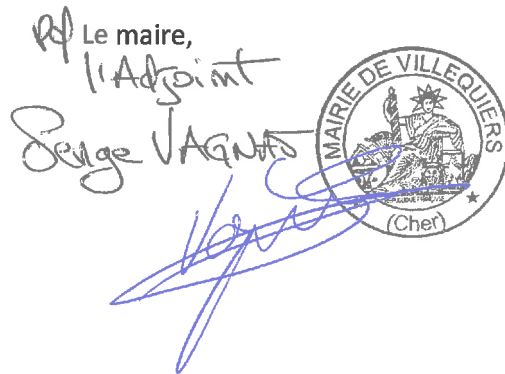 Pd Le maire,
l'Adjoint
Serge VAGNAT
MAIRIE DE VILLEQUIERS
RÉPUBLIQUE FRANÇAISE
(Cher)